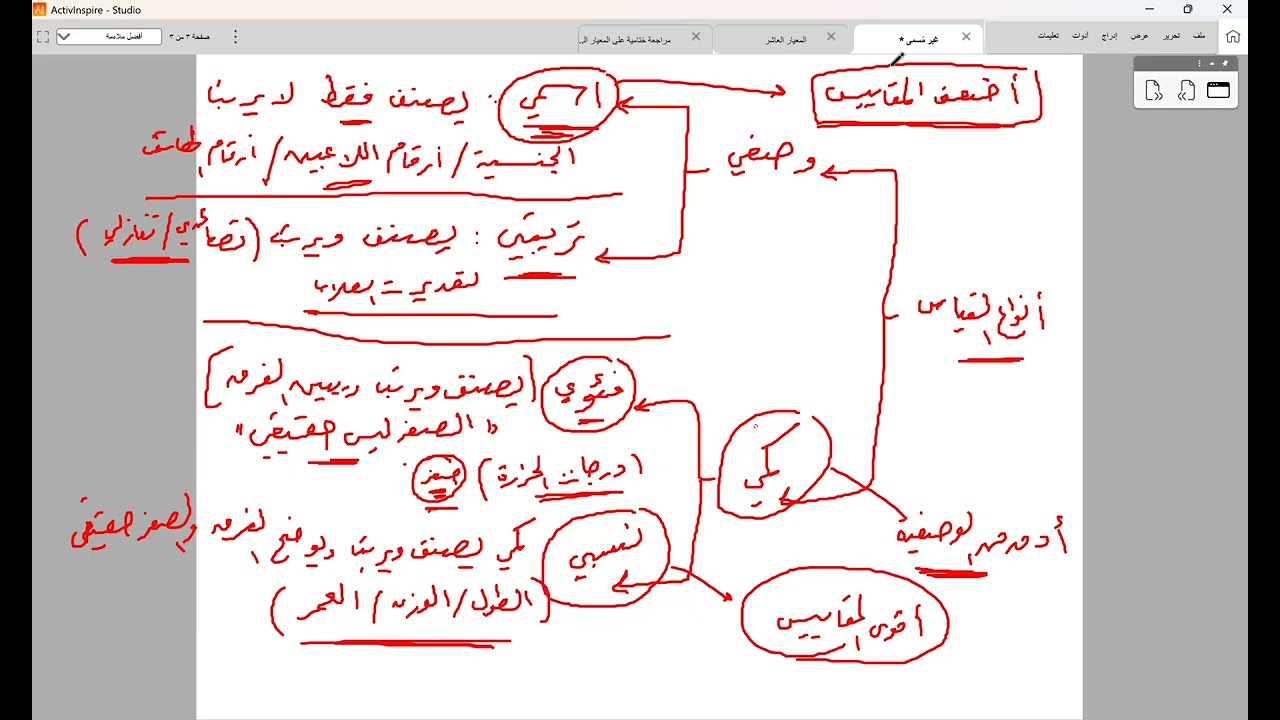 ActivInspire - Studio
ملف تحرير عرض إدراج أدوات تعليمات
غير مُسمى *
المعيار العاشر
مراجعة ختامية على المعيار الـ..
صفحة ٣ من ٣
أفضل ملاءمة
أضعف المقاييس
اسمي : يصنف فقط لا يرتب
الجنسية / أرقام اللاعبين / أرقام
وصفي
ترتيبي : يصنف ويرتب (تصاعدي / تنازلي)
تقديرات الطلاب
أنواع القياس
فئوي [يصنف ويرتب ويبين الفرق]
"الصفر ليس حقيقي"
(درجات الحرارة) صفر
كمي
أدق من الوصفية
نسبي كمي يصنف ويرتب ويوضح الفرق والصفر حقيقي
(الطول / الوزن / العمر)
أقوى المقاييس